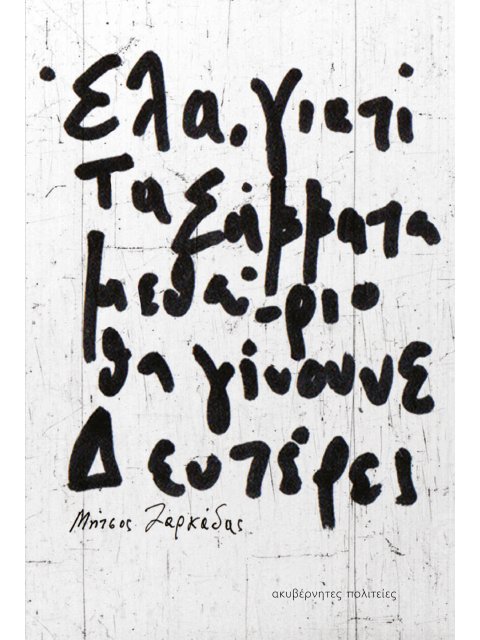 Έλα, γιατί
τα Σάββατα
μεθαύριο
θα γίνουνε
Δευτέρες
Μήτσος Ζαρκάδας
ακυβέρνητες πολιτείες